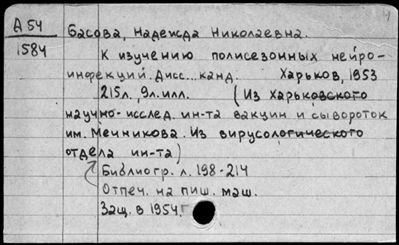 А 54 Басова, Надежда Николаевна.
1584
К изучению полисезонных нейро-
инфекций. Дисс... канд. Харьков, 1953
215л., 9л.илл. (Из Харьковского
научно-исслед. ин-та вакцин и сывороток
им. Мечникова. Из вирусологического
отдела ин-та)
Библиогр. л. 198-214
Отпеч. на пиш. маш.
Защ. в 1954г